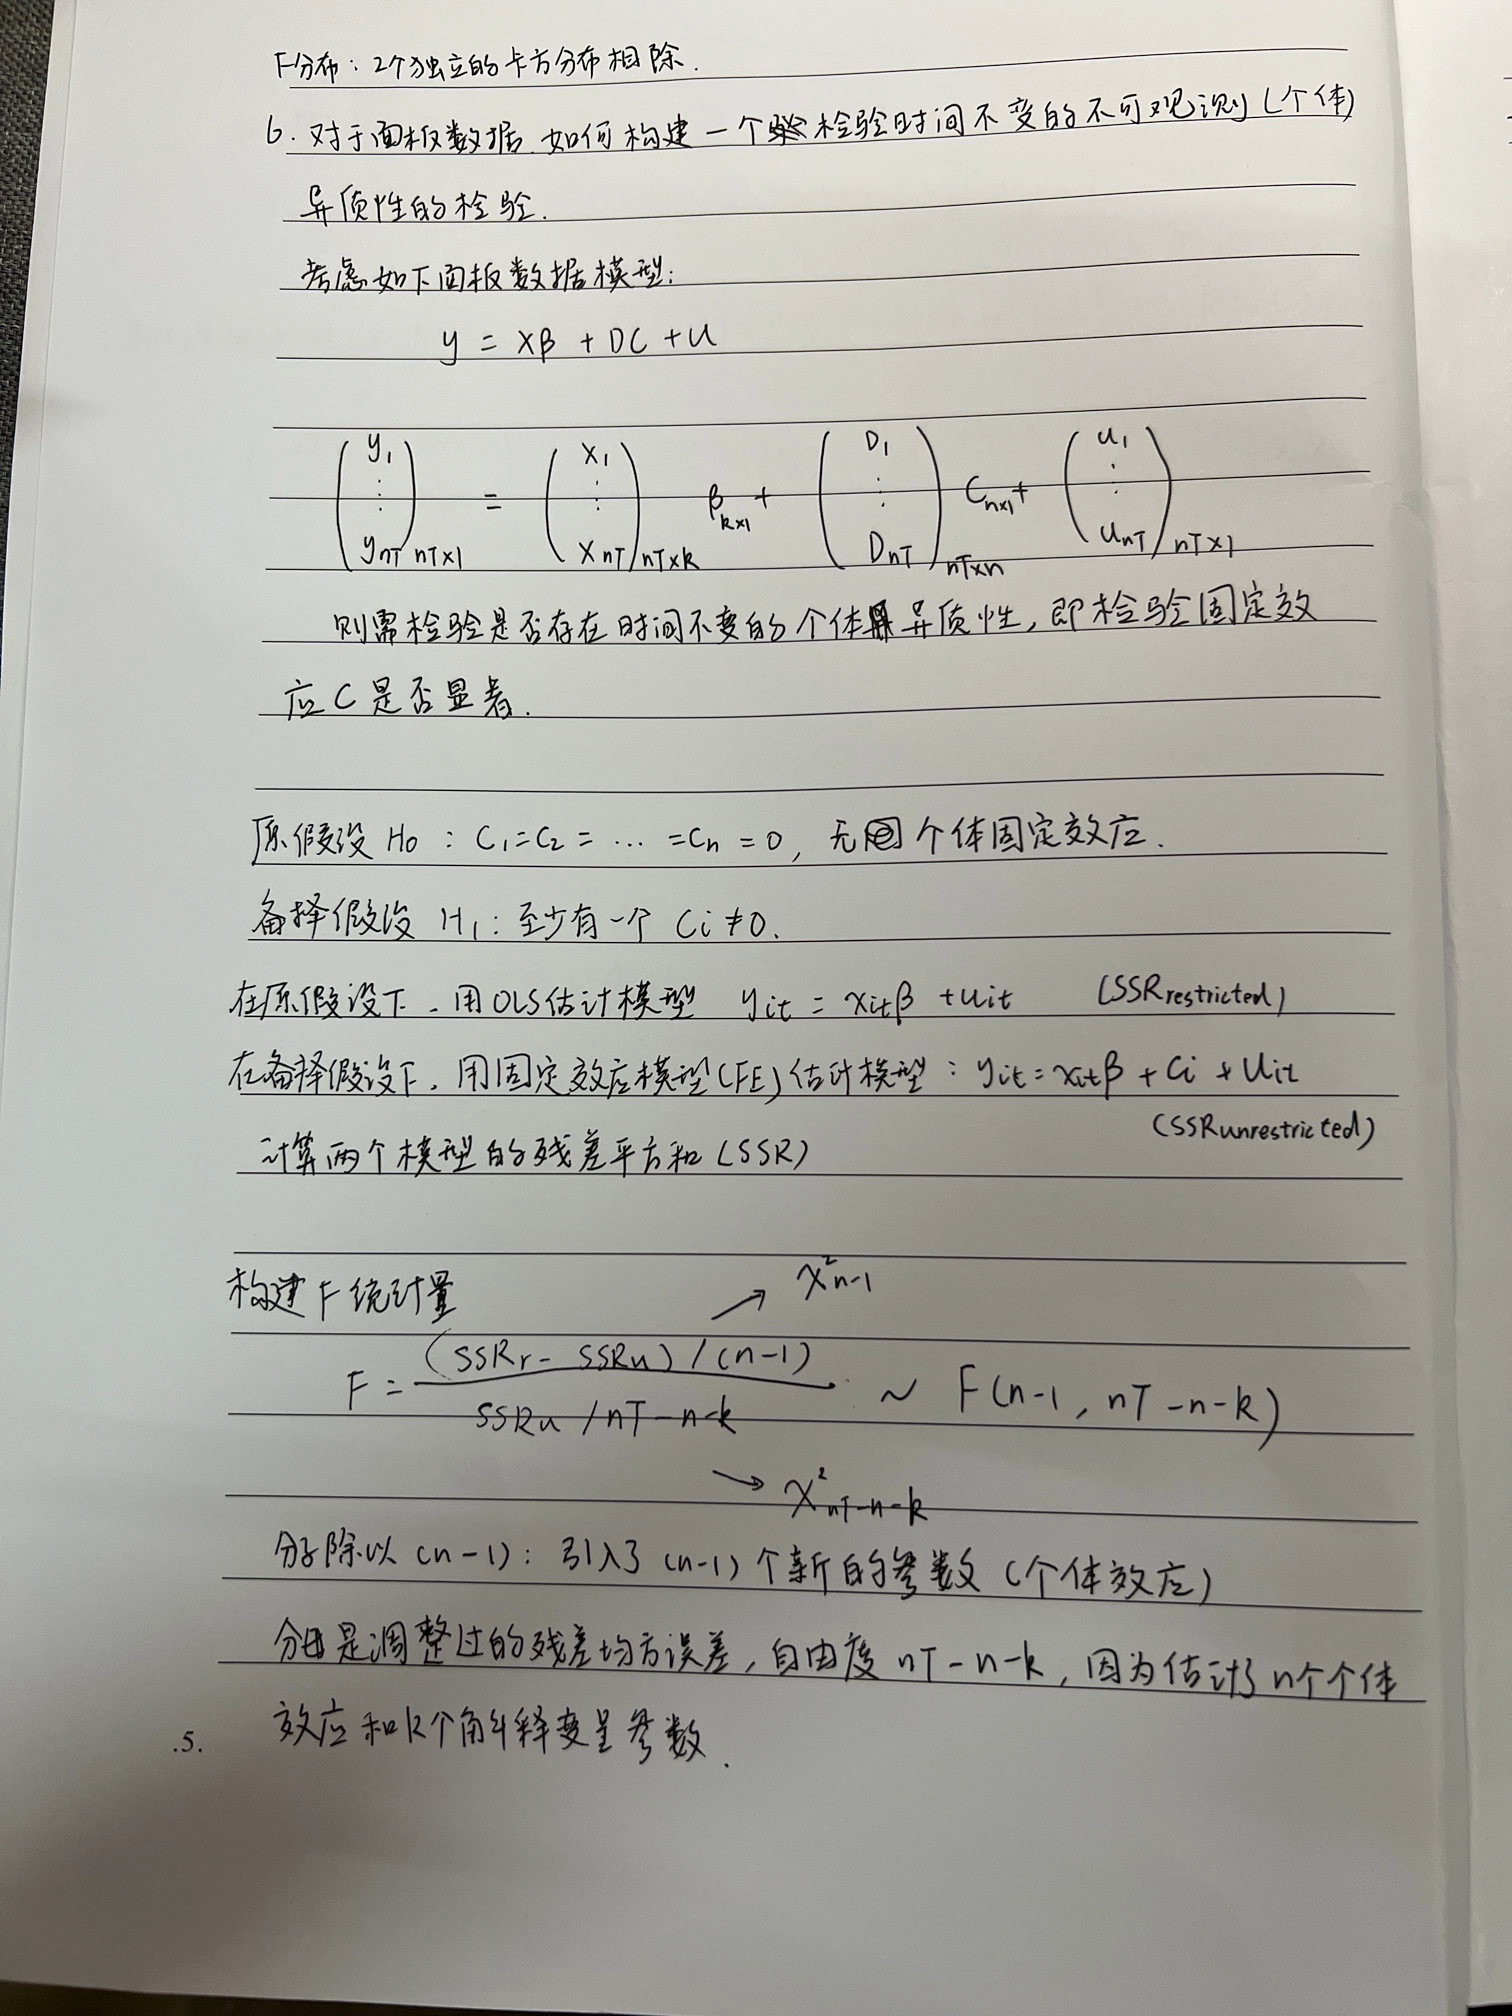 F分布：2个独立的卡方分布相除.
6. 对于面板数据.如何构建一个检验时间不变的不可观测(个体)
异质性的检验.
考虑如下面板数据模型:
y = xβ + DC + u
(y₁ ⋮ ynT)nT×1 = (x₁ ⋮ xnT)nT×k βk×1 + (D₁ ⋮ DnT)nT×n Cn×1 + (u₁ ⋮ unT)nT×1
则需检验是否存在时间不变的个体异质性, 即检验固定效
应C是否显著.
原假设 H₀ : C₁=C₂= ... =Cn = 0, 无个体固定效应.
备择假设 H₁: 至少有一个 Ci≠0.
在原假设下. 用OLS估计模型 yit = xitβ + uit (SSRrestricted)
在备择假设下. 用固定效应模型(FE)估计模型: yit = xitβ + Ci + uit
(SSRunrestricted)
计算两个模型的残差平方和(SSR)
构建F统计量 ↗ χ²n-1
F = (SSRr - SSRu) / (n-1) / SSRu / nT-n-k ~ F(n-1, nT-n-k)
↘ χ²nT-n-k
分子除以(n-1): 引入了(n-1)个新的参数(个体效应)
分母是调整过的残差均方误差, 自由度nT-n-k, 因为估计了n个个体
.5. 效应和k个解释变量参数.